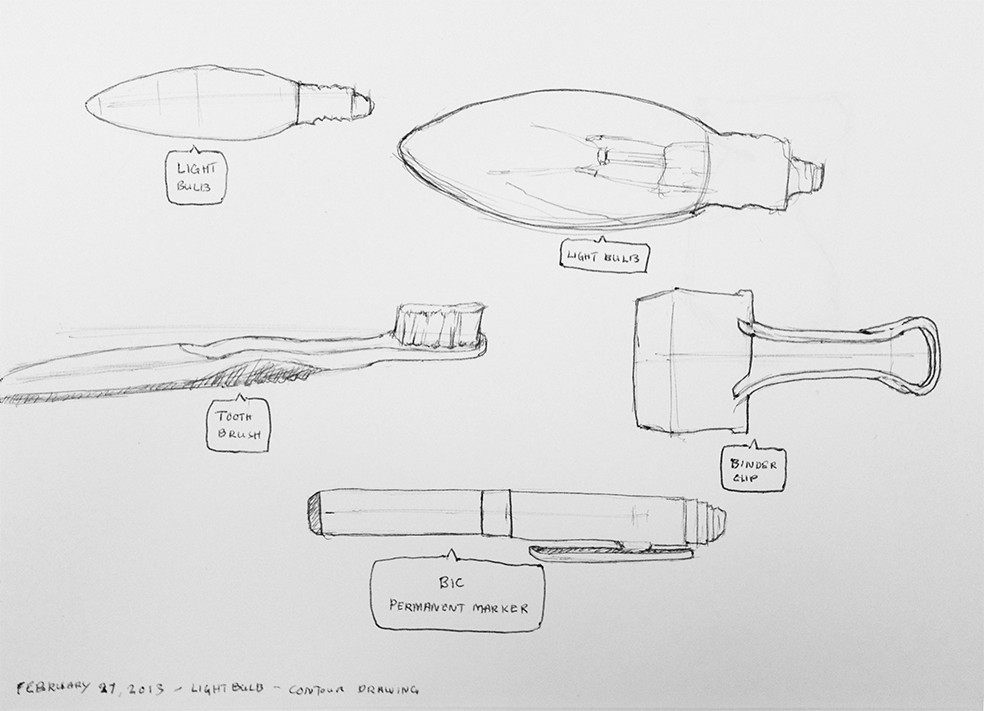 LIGHT
BULB
LIGHT BULB
TOOTH
BRUSH
BINDER
CLIP
BIC
PERMANENT MARKER
FEBRUARY 27, 2013 - LIGHTBULB - CONTOUR DRAWING